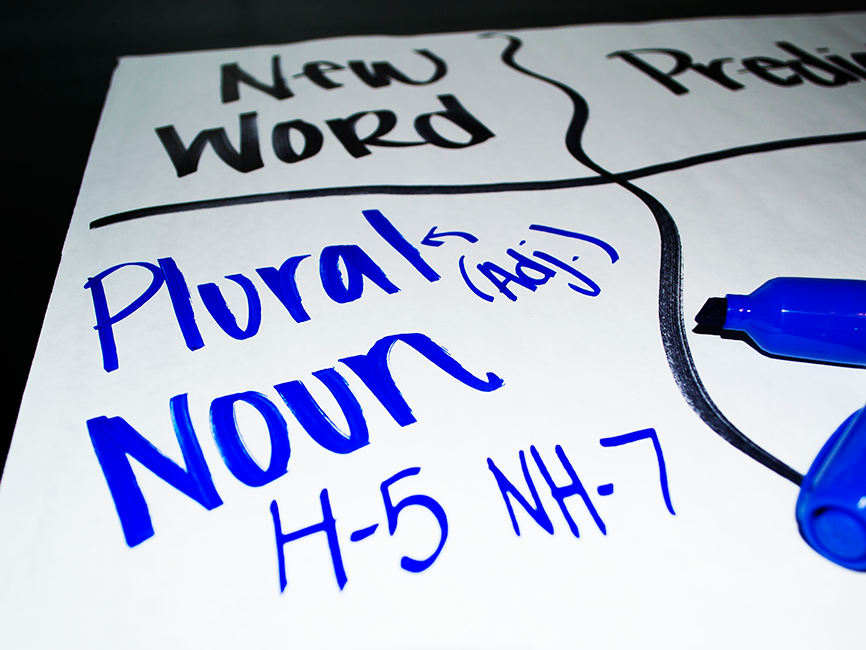 New
Word
Plural ← (Adj.)
Noun
H-5 NH-7